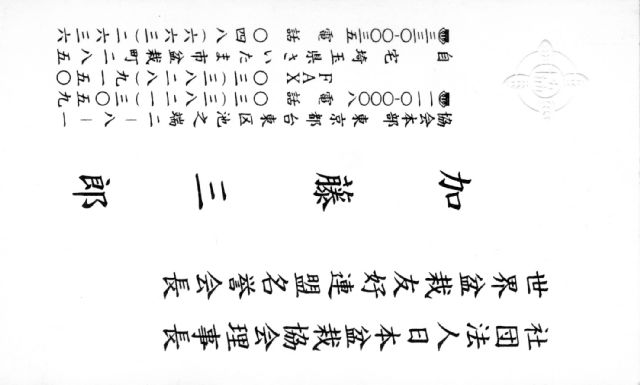 社団法人日本盆栽協会理事長
世界盆栽友好連盟名誉会長
加藤三郎
協会本部 東京都台東区池之端二―八―一
〒一一〇-〇〇〇八 電話 〇三(三八二一)三〇五九
FAX 〇三(三八二八)九一五〇
自宅 埼玉県さいたま市盆栽町二八五
〒三三〇-〇〇三五 電話 〇四八